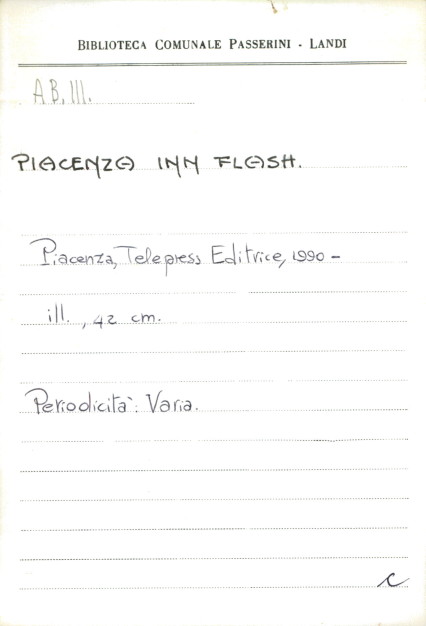 BIBLIOTECA COMUNALE PASSERINI - LANDI
AB. III.
PIACENZA INN FLASH.
Piacenza, Telepress Editrice, 1990 -
ill., 42 cm.
Periodicita': Varia.
C